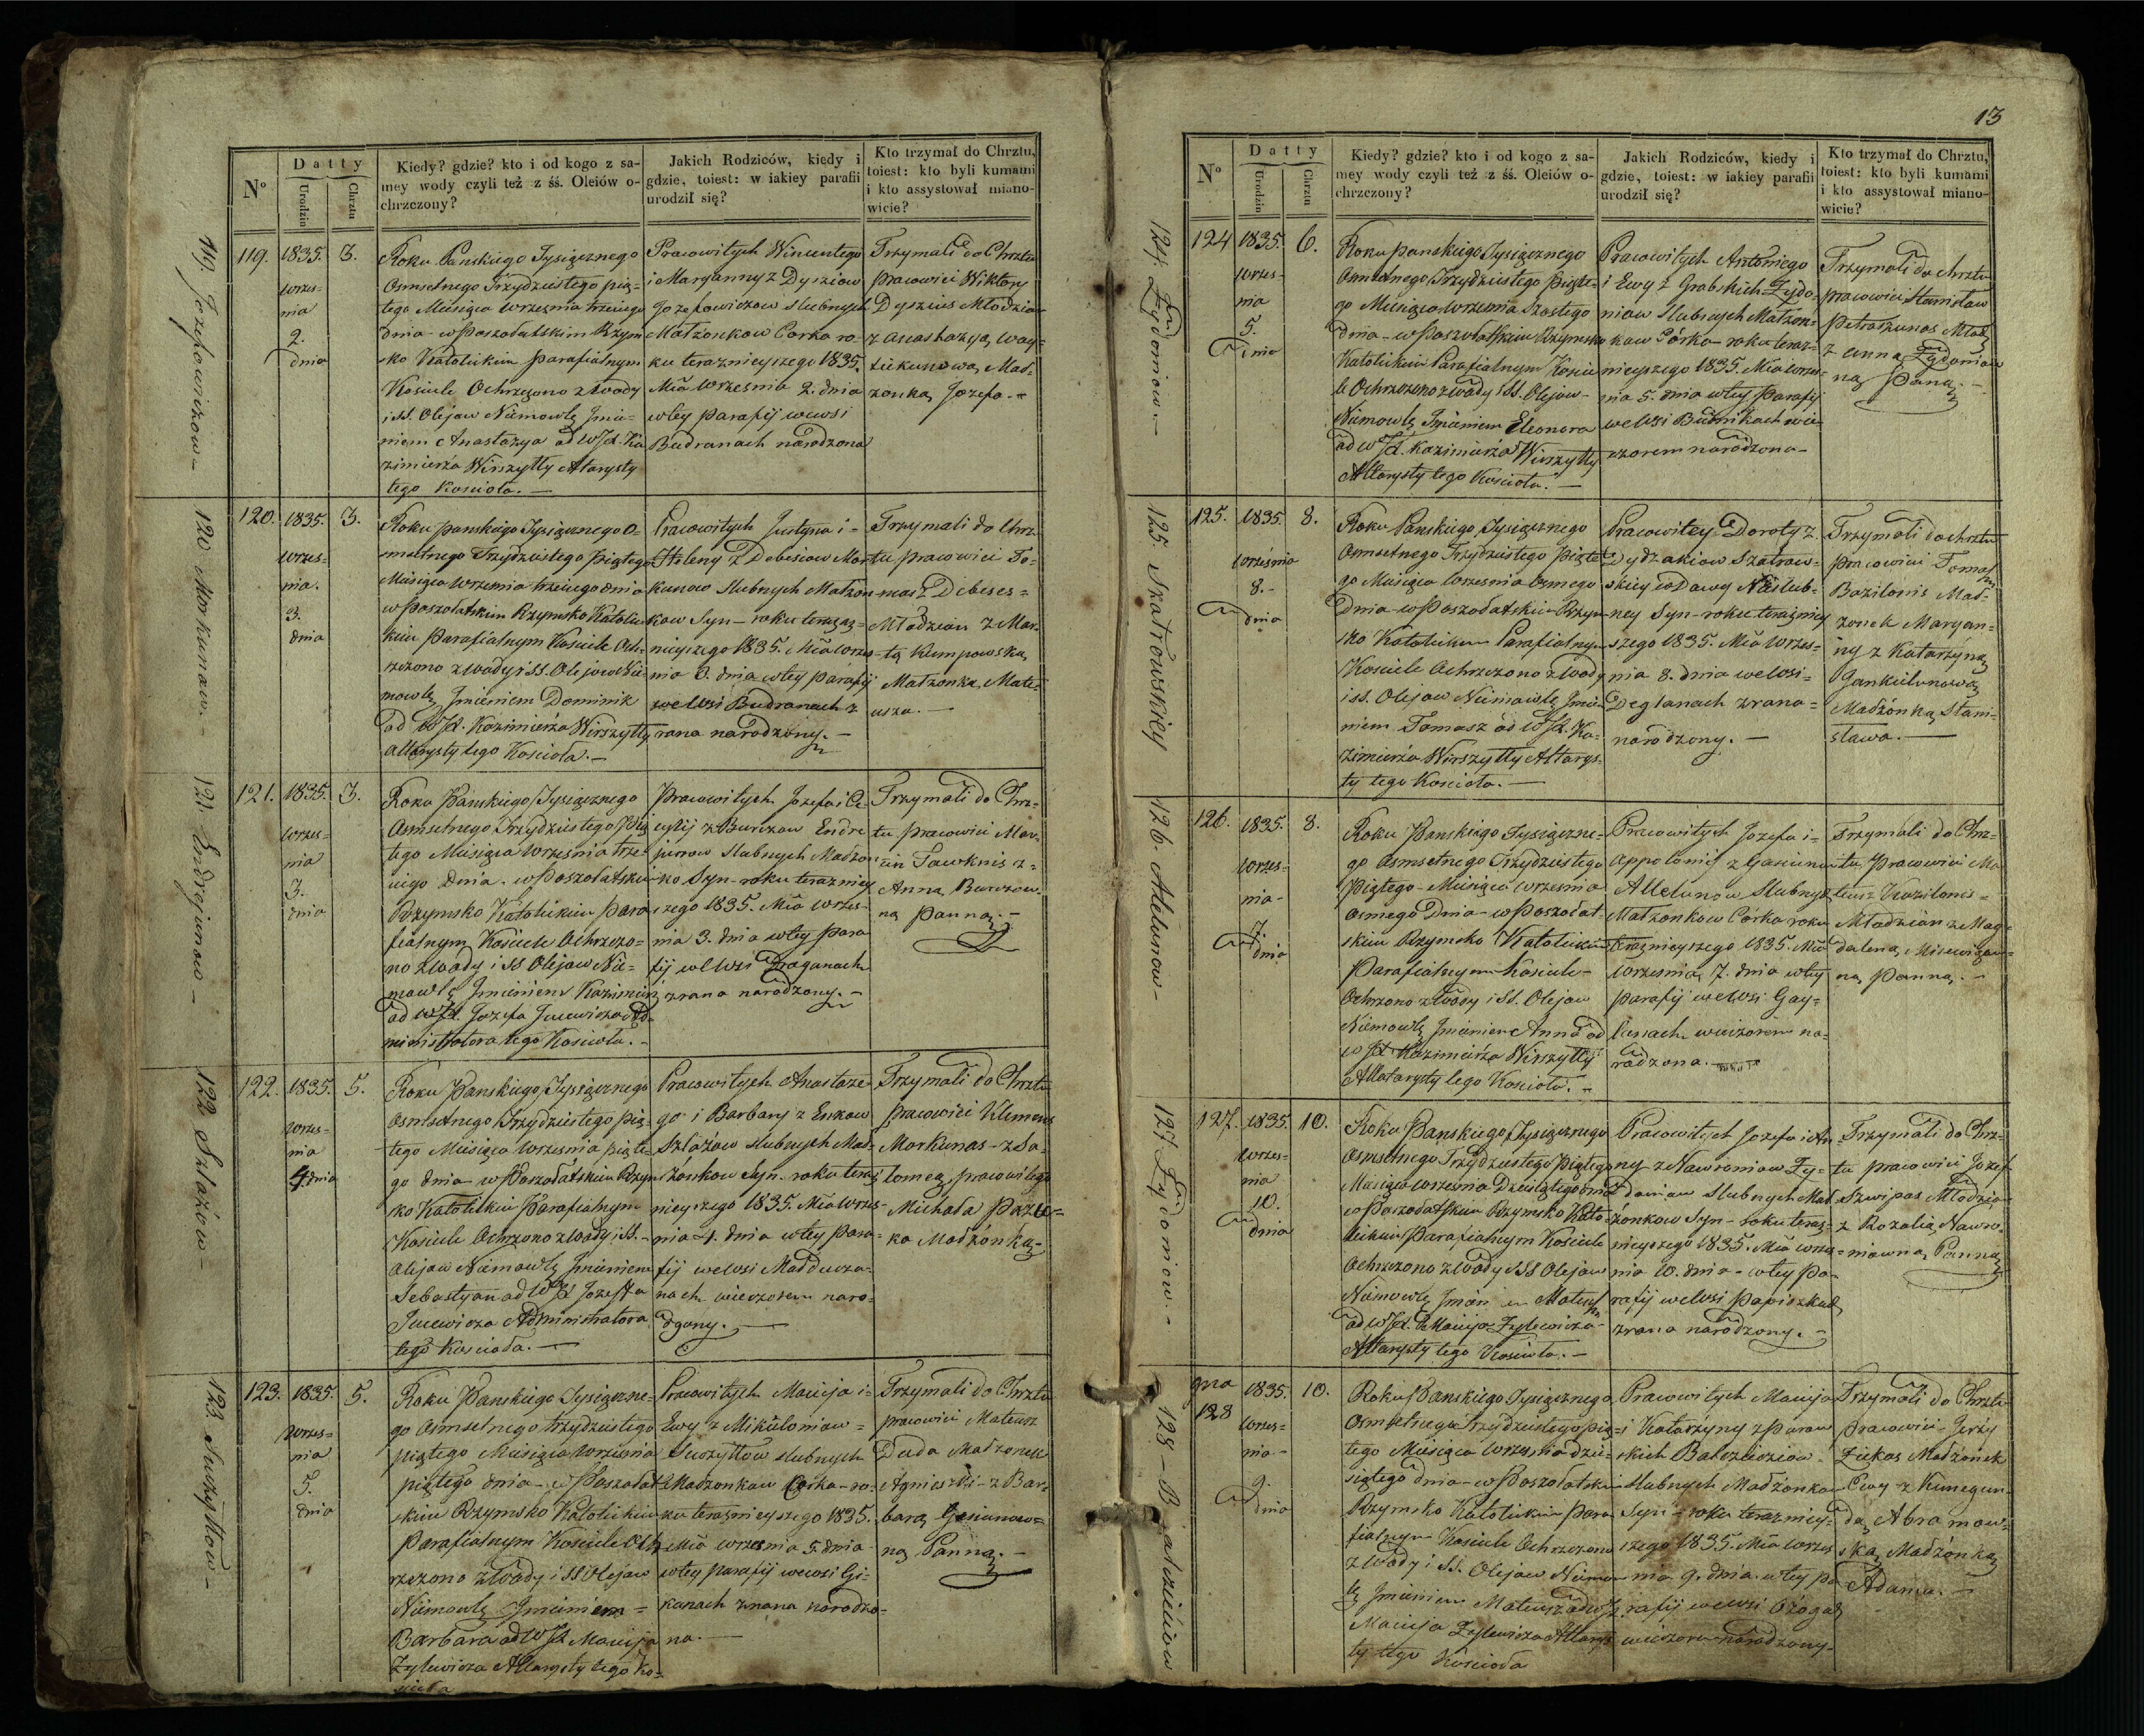 13
N°
Datty
Urodzin
Chrztu
Kiedy? gdzie? kto i od kogo z sa-
mey wody czyli też z śś. Oleiów o-
chrzczony?
Jakich Rodziców, kiedy i
gdzie, toiest: w iakiey parafii
urodził się?
Kto trzymał do Chrztu,
toiest: kto byli kumami
i kto assystował miano-
wicie?
119. Jozefowiczow -
119.
1835.
wrzes-
nia
2.
dnia
3.
Roku Panskiego Tysiącznego
Osmsetnego Trzydziestego pią-
tego Miesiąca Wrzesnia trzeciego
dnia - w Poszołatskim Rzym
sko Katolickim parafialnym
Kosciele Ochrzczono z Wody
i SS. Olejow Niemowlę Jmie-
niem Anastazya od WJX. Ka
zimierża Wirszyłły Altarysty
tego Kosciola. -
Pracowitych Wincentego
i Maryanny z Dysziow
Jozefowiczow slubnych
Małżonkow Corka ro-
ku teraznieyszego 1835.
Mca Wrzesnia 2. dnia
w tey parafij we wsi
Budranach narodzona
Trzymali do Chrztu
pracowici Wiktory
Dyszius Młodzian
z Anastazyą Way-
tiekunową Mał-
żonką Jozefa. -
120 Morkunow. -
120.
1835.
wrzes-
nia.
3.
dnia
3.
Roku panskiego Tysiącznego O-
smsetnego Trzydziestego piątego
Miesiąca Wrzesnia trzeciego dnia
w Poszołatskim Rzymsko Katolic-
kim parafialnym Kosciele Och-
rzczono z Wody i SS. Olejow Nie-
mowlę Jmieniem Dominik
od WJX. Kazimierża Wirszyłły
Altarysty tego Kosciola. -
Pracowitych Justyna i -
Heleny z Debesiow Mor-
kunow slubnych Małżon-
kow Syn - roku teraz-
nieyszego 1835. Mca Wrzes-
nia 3. dnia w tey parafij
we Wsi Budranach z
rana narodzony. -
Trzymali do Chrz-
tu pracowici To-
masz Debeses -
Młodzian z Mar-
tą Kumpowską
Małżonką Mate-
usza. -
121. Endrejunow -
121.
1835.
wrzes-
nia
3.
dnia
3.
Roku Panskiego Tysiącznego
Osmsetnego Trzydziestego pią
tego Miesiąca Wrzesnia trze-
ciego Dnia. w Poszołatskim
Rzymsko Katolickim para
fialnym Kosciele Ochrzczo-
no z Wody i SS Olejow Nie-
mowlę Jmieniem Kazimierz
od WJX. Jozefa Jucewicza Ad-
ministratora tego Kosciola. -
Pracowitych Jozefa i Ce-
cylij z Burczow Endre
junow slubnych Małżon-
ko Syn - roku terazniey
szego 1835. Mca Wrzes-
nia 3. dnia w tey para
fij we Wsi Draganach
z rana narodzony. -
Trzymali do Chrz-
tu pracowici Mar-
cin Tawknis z -
Anną Burczow-
ną panną. -
122 Szlażow -
122.
1835.
wrzes-
nia
4. dnia
5.
Roku Panskiego Tysiącznego
Osmsetnego Trzydziestego pią-
tego Miesiąca Wrzesnia piąte-
go dnia - w Poszołatskim Rzym
sko Katolickim Parafialnym
Kosciele Ochrzono z Wody i SS. -
Olejow Niemowlę Jmieniem
Sebastyan od WJX Jozeffa
Jucewicza Administratora
tego Kosciola. -
Pracowitych Anastaze-
go i Barbary z Enzow
Szlażow slubnych Mał-
żonkow Syn. roku teraz
nieyszego 1835. Mca Wrzes-
nia 4. dnia w tey para-
fij we wsi Małducza-
nach wieczorem naro-
dzony. -
Trzymali do Chrztu
pracowici Klemens
Morkunas - z Sa-
lomeą pracowitego
Michała Pazle-
ka Małżonką -
123. Suczyłłow -
123.
1835.
wrzes-
nia
5.
dnia
5.
Roku Panskiego Tysiączne-
go Osmsetnego trzydziestego
piątego Miesiąca Wrzesnia
piątego dnia - w Poszołat-
skim Rzymsko Katolickim
Parafialnym Kosciele Och-
rzczono z Wody i SS Olejow
Niemowlę Jmieniem -
Barbara od WJX Macieja
Zylewicza Altarysty tego Ko-
sciola
Pracowitych Macieja i -
Ewy z Mikuloniow -
Suczyłłow slubnych
Małżonkow Corka - ro-
ku teraznieyszego 1835.
Mca wrzesnia 5. dnia
w tey parafij we wsi Gi-
kanach z rana narodzo-
na. -
Trzymali do Chrztu
pracowici Mateusz
Duda Małżonek
Agnieszki - z Bar-
barą Gasiunow-
ną Panną. -
N°
Datty
Urodzin
Chrztu
Kiedy? gdzie? kto i od kogo z sa-
mey wody czyli też z śś. Oleiów o-
chrzczony?
Jakich Rodziców, kiedy i
gdzie, toiest: w iakiey parafii
urodził się?
Kto trzymał do Chrztu,
toiest: kto byli kumami
i kto assystował miano-
wicie?
124 Żydoniow. -
124
1835.
wrzes-
nia
5.
dnia
6.
Roku panskiego Tysiącznego
Osmsetnego Trzydziestego Piąte-
go Miesiąca Wrzesnia Szostego
dnia - w Poszołatskim Rzymsko
Katolickim Parafialnym Koscie
le Ochrzczono z Wody i SS. Olejow -
Niemowlę Jmieniem Eleonora
od WJX. Kazimierża Wirszyłły
Altarysty tego Kosciola. -
Pracowitych Antoniego
i Ewy z Grabskich Żydo-
niow slubnych Małżon-
kow Córka - roku teraz-
nieyszego 1835. Mca wrzes-
nia 5. dnia w tey Parafij
we Wsi Budnikach wie-
czorem narodzona -
Trzymali do chrztu
pracowici Stanisław
Petraszunas Młodz
z Anną Żydoniow
ną Panną. -
125. Szatrowskiey
125.
1835.
wrzesnia
8. -
dnia
8.
Roku Panskiego Tysiącznego
Osmsetnego Trzydziestego piąte
go Miesiąca Wrzesnia osmego
Dnia - w Poszołatskim Rzym-
sko Katolickim Parafialnym
Kosciele Ochrzczono z Wody
i SS. Olejow Niemowlę Jmie-
niem Tomasz od WJX. Ka-
zimierża Wirszyłły Altarys-
ty tego Kosciola. -
Pracowitey Doroty z
Dydżakiow Szatrow-
skiey Wdowy Nieslub-
ney Syn - roku teraźniey
szego 1835. Mca Wrzes-
nia 8. dnia we Wsi -
Deglanach z rana -
narodzony. -
Trzymali do chrztu
pracowici Tomasz
Bazilonis Mał-
żonek Maryan-
ny z Katarzyną
Jankielunową
Małżonką Stani-
sława. -
126. Alelunow -
126.
1835.
wrzes-
nia -
7.
dnia
8.
Roku Panskiego Tysiączne-
go Osmsetnego Trzydziestego
Piątego - Miesiąca wrzesnia
osmego Dnia - w Poszołat-
skim Rzymsko Katolickim
Parafialnym Kosciele -
Ochrzono z Wody i SS. Olejow
Niemowlę Jmieniem Anna od
WJX Kazimierża Wirszyłły
Altarysty tego Kosciola. -
Pracowitych Jozefa i -
Appolonij z Gasiunow
Allelunow slubnych
Małżonkow Córka roku
teraznieyszego 1835. Mca
wrzesnia 7. dnia w tey
parafij we wsi Gay-
lanach wieczorem na-
rodzona. -
Trzymali do Chrz-
tu Pracowici Ma-
teusz Kozilonis -
Młodzian z Mag-
daleną Misewiczow-
ną Panną. -
127 Żydoniow. -
127.
1835.
wrzes-
nia
10.
dnia
10.
Roku Panskiego Tysiącznego
Osmsetnego Trzydziestego Piątego
Miesiąca wrzesnia Dziesiątego dnia
w Poszołatskim Rzymsko Kato-
lickim Parafialnym Kosciele
Ochrzczono z Wody i SS Olejow
Niemowlę Jmieniem Mateusz
od WJX. Macieja Zylewicza
Altarysty tego Kosciola. -
Pracowitych Jozefa i An-
ny z Nawroniow Ży-
doniow slubnych Mał-
żonkow Syn - roku teraz-
nieyszego 1835. Mca wrze-
nia 10. dnia - w tey Pa-
rafij we Wsi Papiszkach
z rana narodzony. -
Trzymali do Chrz-
tu pracowici Jozef
Szwipas Młodzian
z Rozalią Nawro-
niowną Panną
128 - Balcziciow
128
1835.
wrzes-
nia -
9.
dnia
10.
Roku Panskiego Tysiącznego
Osmsetnego Trzydziestego pią-
tego Miesiąca wrzesnia dzie-
siątego dnia - w Poszołatskim
Rzymsko Katolickim Para
fialnym Kosciele Ochrzczono
z Wody i SS. Olejow Niemow
lę Jmieniem Mateusz od WJX
Macieja Zylewicza Altarys
ty tego Kosciola
Pracowitych Macieja
i Katarzyny z Paraw
skich Balcziciow -
slubnych Małżonkow
Syn - roku terazniey-
szego 1835. Mca wrzes
nia 9. dnia w tey pa
rafij we wsi Ożogach
wieczorem narodzony -
Trzymali do Chrztu
pracowici - Jerzy
Ziekas Małżonek
Ewy z Kunegun-
dą Abramow-
ską Małżonką
Adama. -